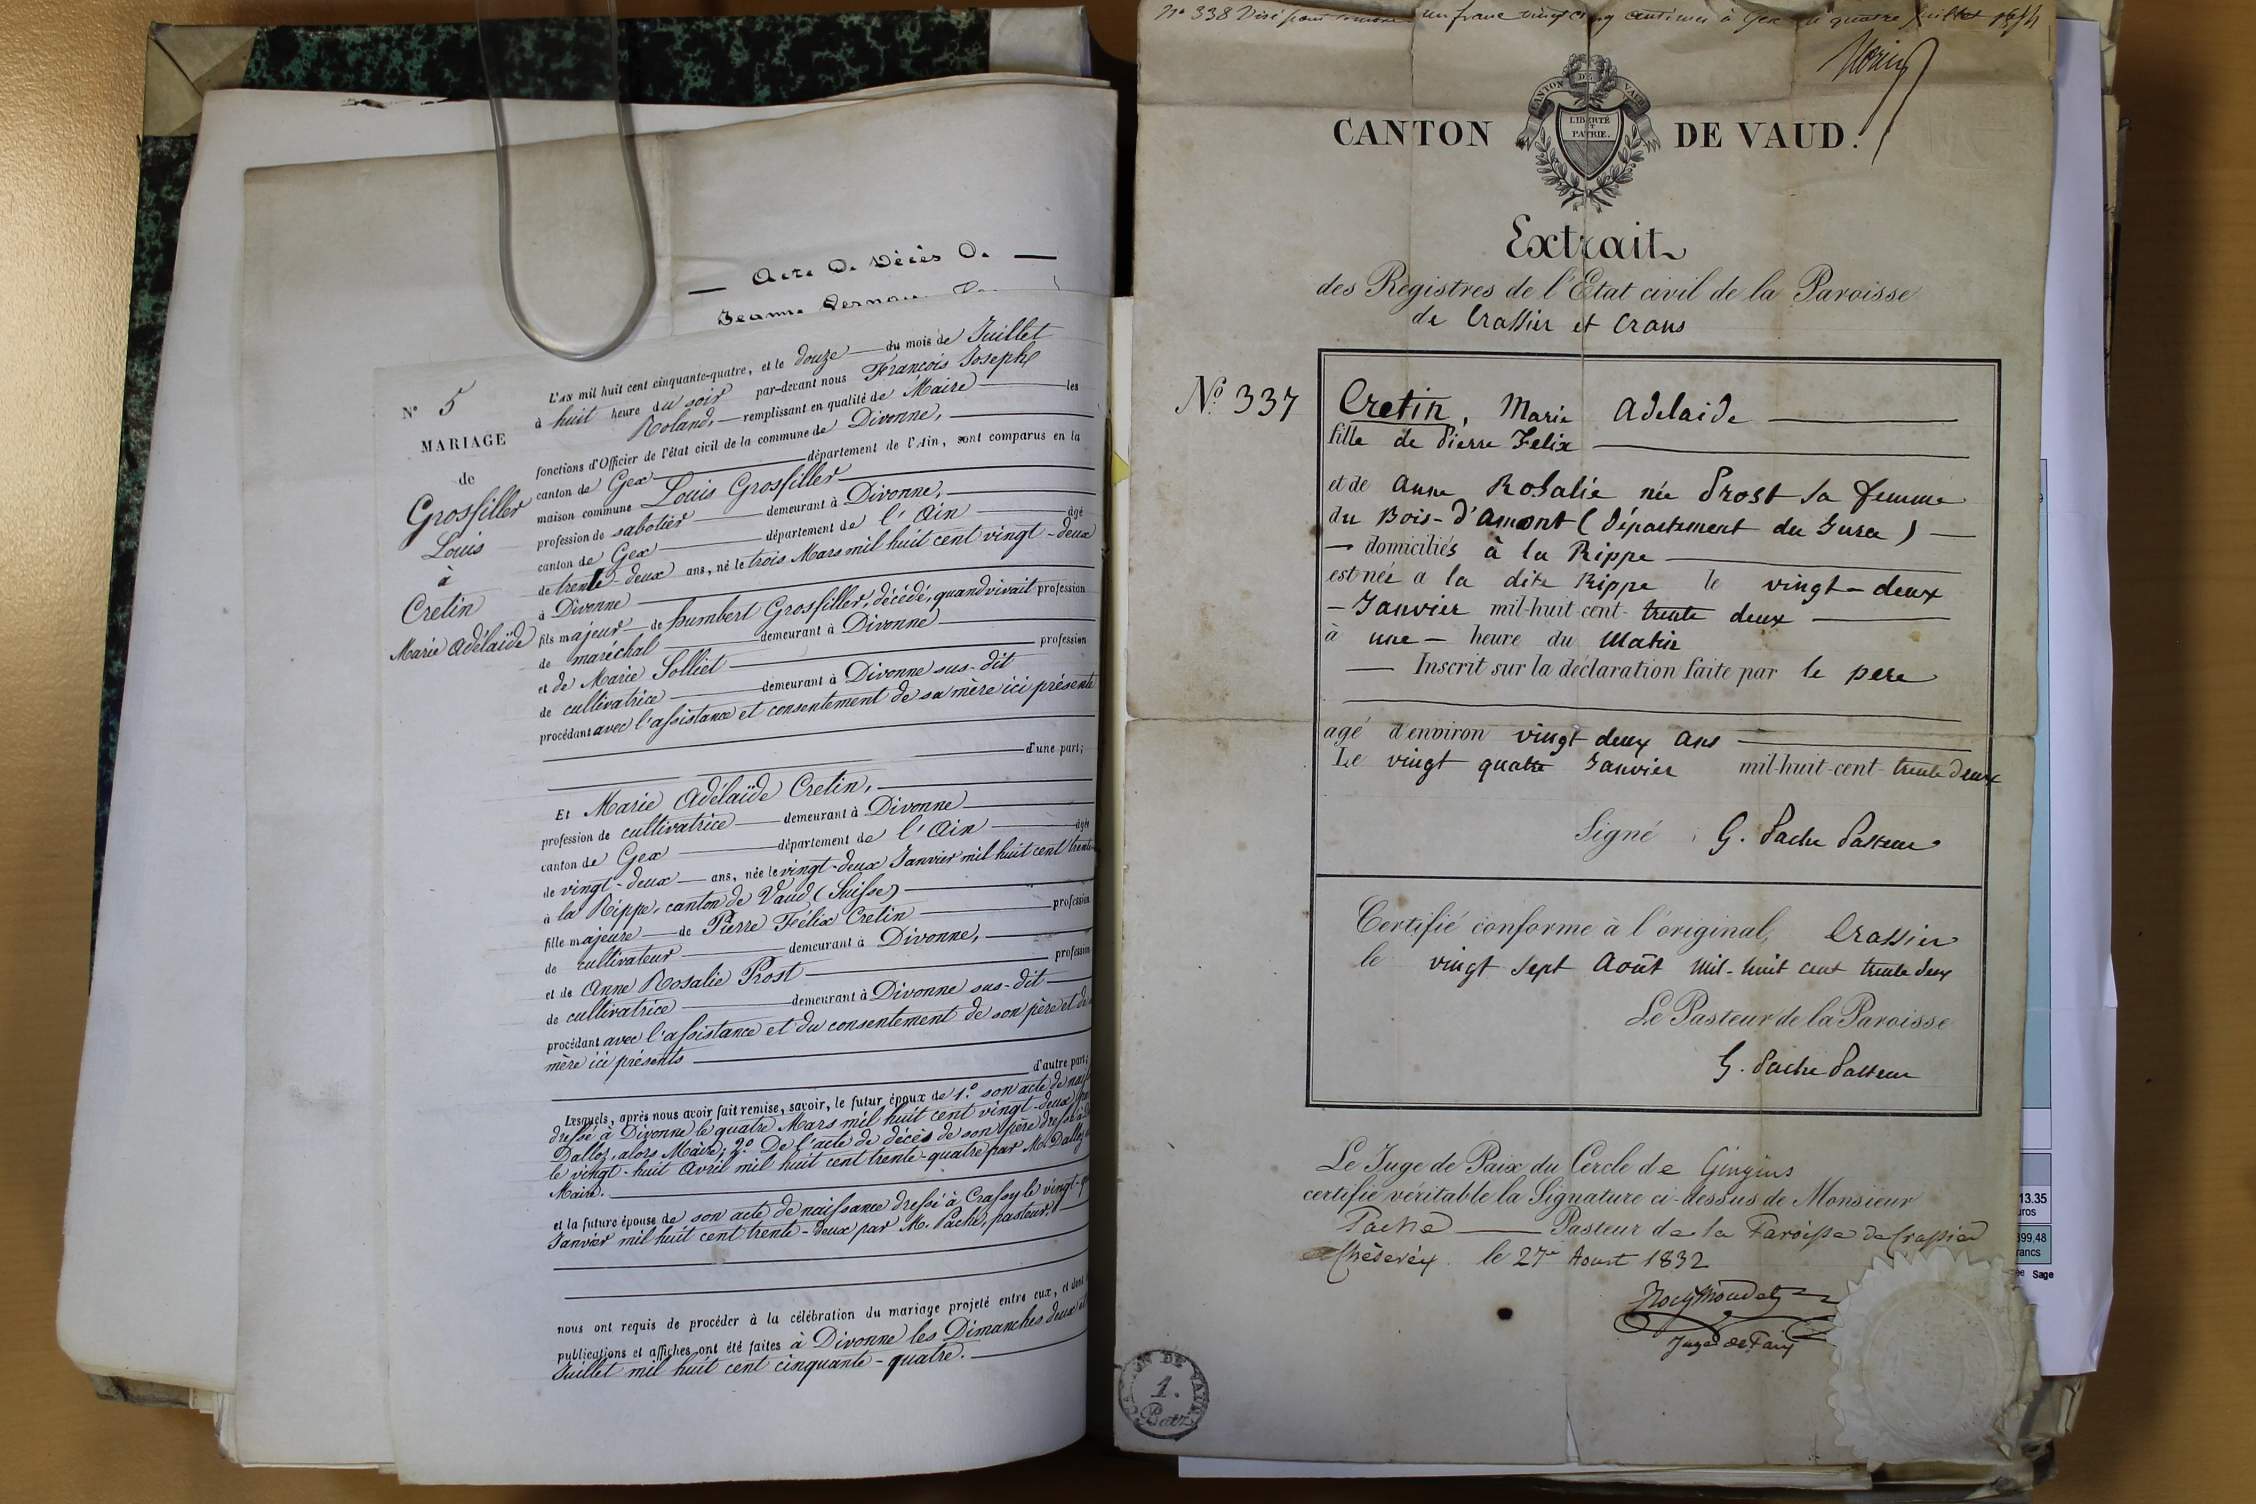 Acte de Décès de
Jeanne
L'AN mil huit cent cinquante-quatre, et le douze du mois de Juillet
à huit heure du soir par-devant nous François Joseph
Roland, remplissant en qualité de Maire les
fonctions d'Officier de l'état civil de la commune de Divonne,
canton de Gex département de l'Ain, sont comparus en la
maison commune Louis Grosfiller
profession de sabotier demeurant à Divonne,
canton de Gex département de l'Ain agé
de trente-deux ans, né le trois Mars mil huit cent vingt-deux
à Divonne
fils majeur de humbert Grosfiller, décédé, quand vivait profession
de maréchal demeurant à Divonne
et de Marie Solliet profession
de cultivatrice demeurant à Divonne sus-dit
procédant avec l'assistance et consentement de sa mère ici présente
d'une part;
Et Marie Adélaïde Cretin,
profession de cultivatrice demeurant à Divonne
canton de Gex département de l'Ain agée
de vingt-deux ans, née le vingt-deux Janvier mil huit cent trente
à la Rippe, canton de Vaud (Suisse)
fille majeure de Pierre Félix Cretin profession
de cultivateur demeurant à Divonne,
et de Anne Rosalie Prost profession
de cultivatrice demeurant à Divonne sus-dit
procédant avec l'assistance et du consentement de son père et de
mère ici présents
d'autre part;
Lesquels, après nous avoir fait remise, savoir, le futur époux de 1º son acte de
dressé à Divonne le quatre Mars mil huit cent vingt-deux
Dalloz, alors Maire; 2º De l'acte de décès de son père dressé
le vingt-huit Avril mil huit cent trente-quatre par Mr Dalloz
Maire.
et la future épouse de son acte de naissance dressé à Crassy le vingt-
Janvier mil huit cent trente-deux par M. Pache, pasteur.
nous ont requis de procéder à la célébration du mariage projeté entre eux, et dont
publications et affiches ont été faites à Divonne les Dimanches deux
Juillet mil huit cent cinquante-quatre.
N° 5
MARIAGE
de
Grosfiller
Louis
à
Cretin
Marie Adélaïde
Nº 338 Visé pour timbre un franc vingt cinq centimes à Gex le quatre juillet 1854
CANTON DE VAUD.
CANTON DE VAUD
LIBERTÉ
ET
PATRIE.
Extrait
des Registres de l'Etat civil de la Paroisse
de Crassier et Crans
Nº 337
Cretin, Marie Adelaide
fille de Pierre Felix
et de Anne Rosalie née Prost sa femme
du Bois-d'Amont (Département du Jura)
domiciliés à la Rippe
est née a la dite Rippe le vingt-deux
Janvier mil-huit-cent-trente deux
à une heure du Matin
Inscrit sur la déclaration faite par le pere
agé d'environ vingt deux ans
Le vingt quatre Janvier mil-huit-cent-trente deux
Signé G. Pache Pasteur
Certifié conforme à l'original, Crassier
le vingt sept Août mil-huit cent trente deux
Le Pasteur de la Paroisse
G. Pache Pasteur
Le Juge de Paix du Cercle de Gingins
certifie véritable la Signature ci-dessus de Monsieur
Pache Pasteur de la Paroisse de Crassier
Chéserex le 27e Aoust 1832
Juge de Paix
CANTON DE VAUD
1.
Batz
13.35
399,48
Sage